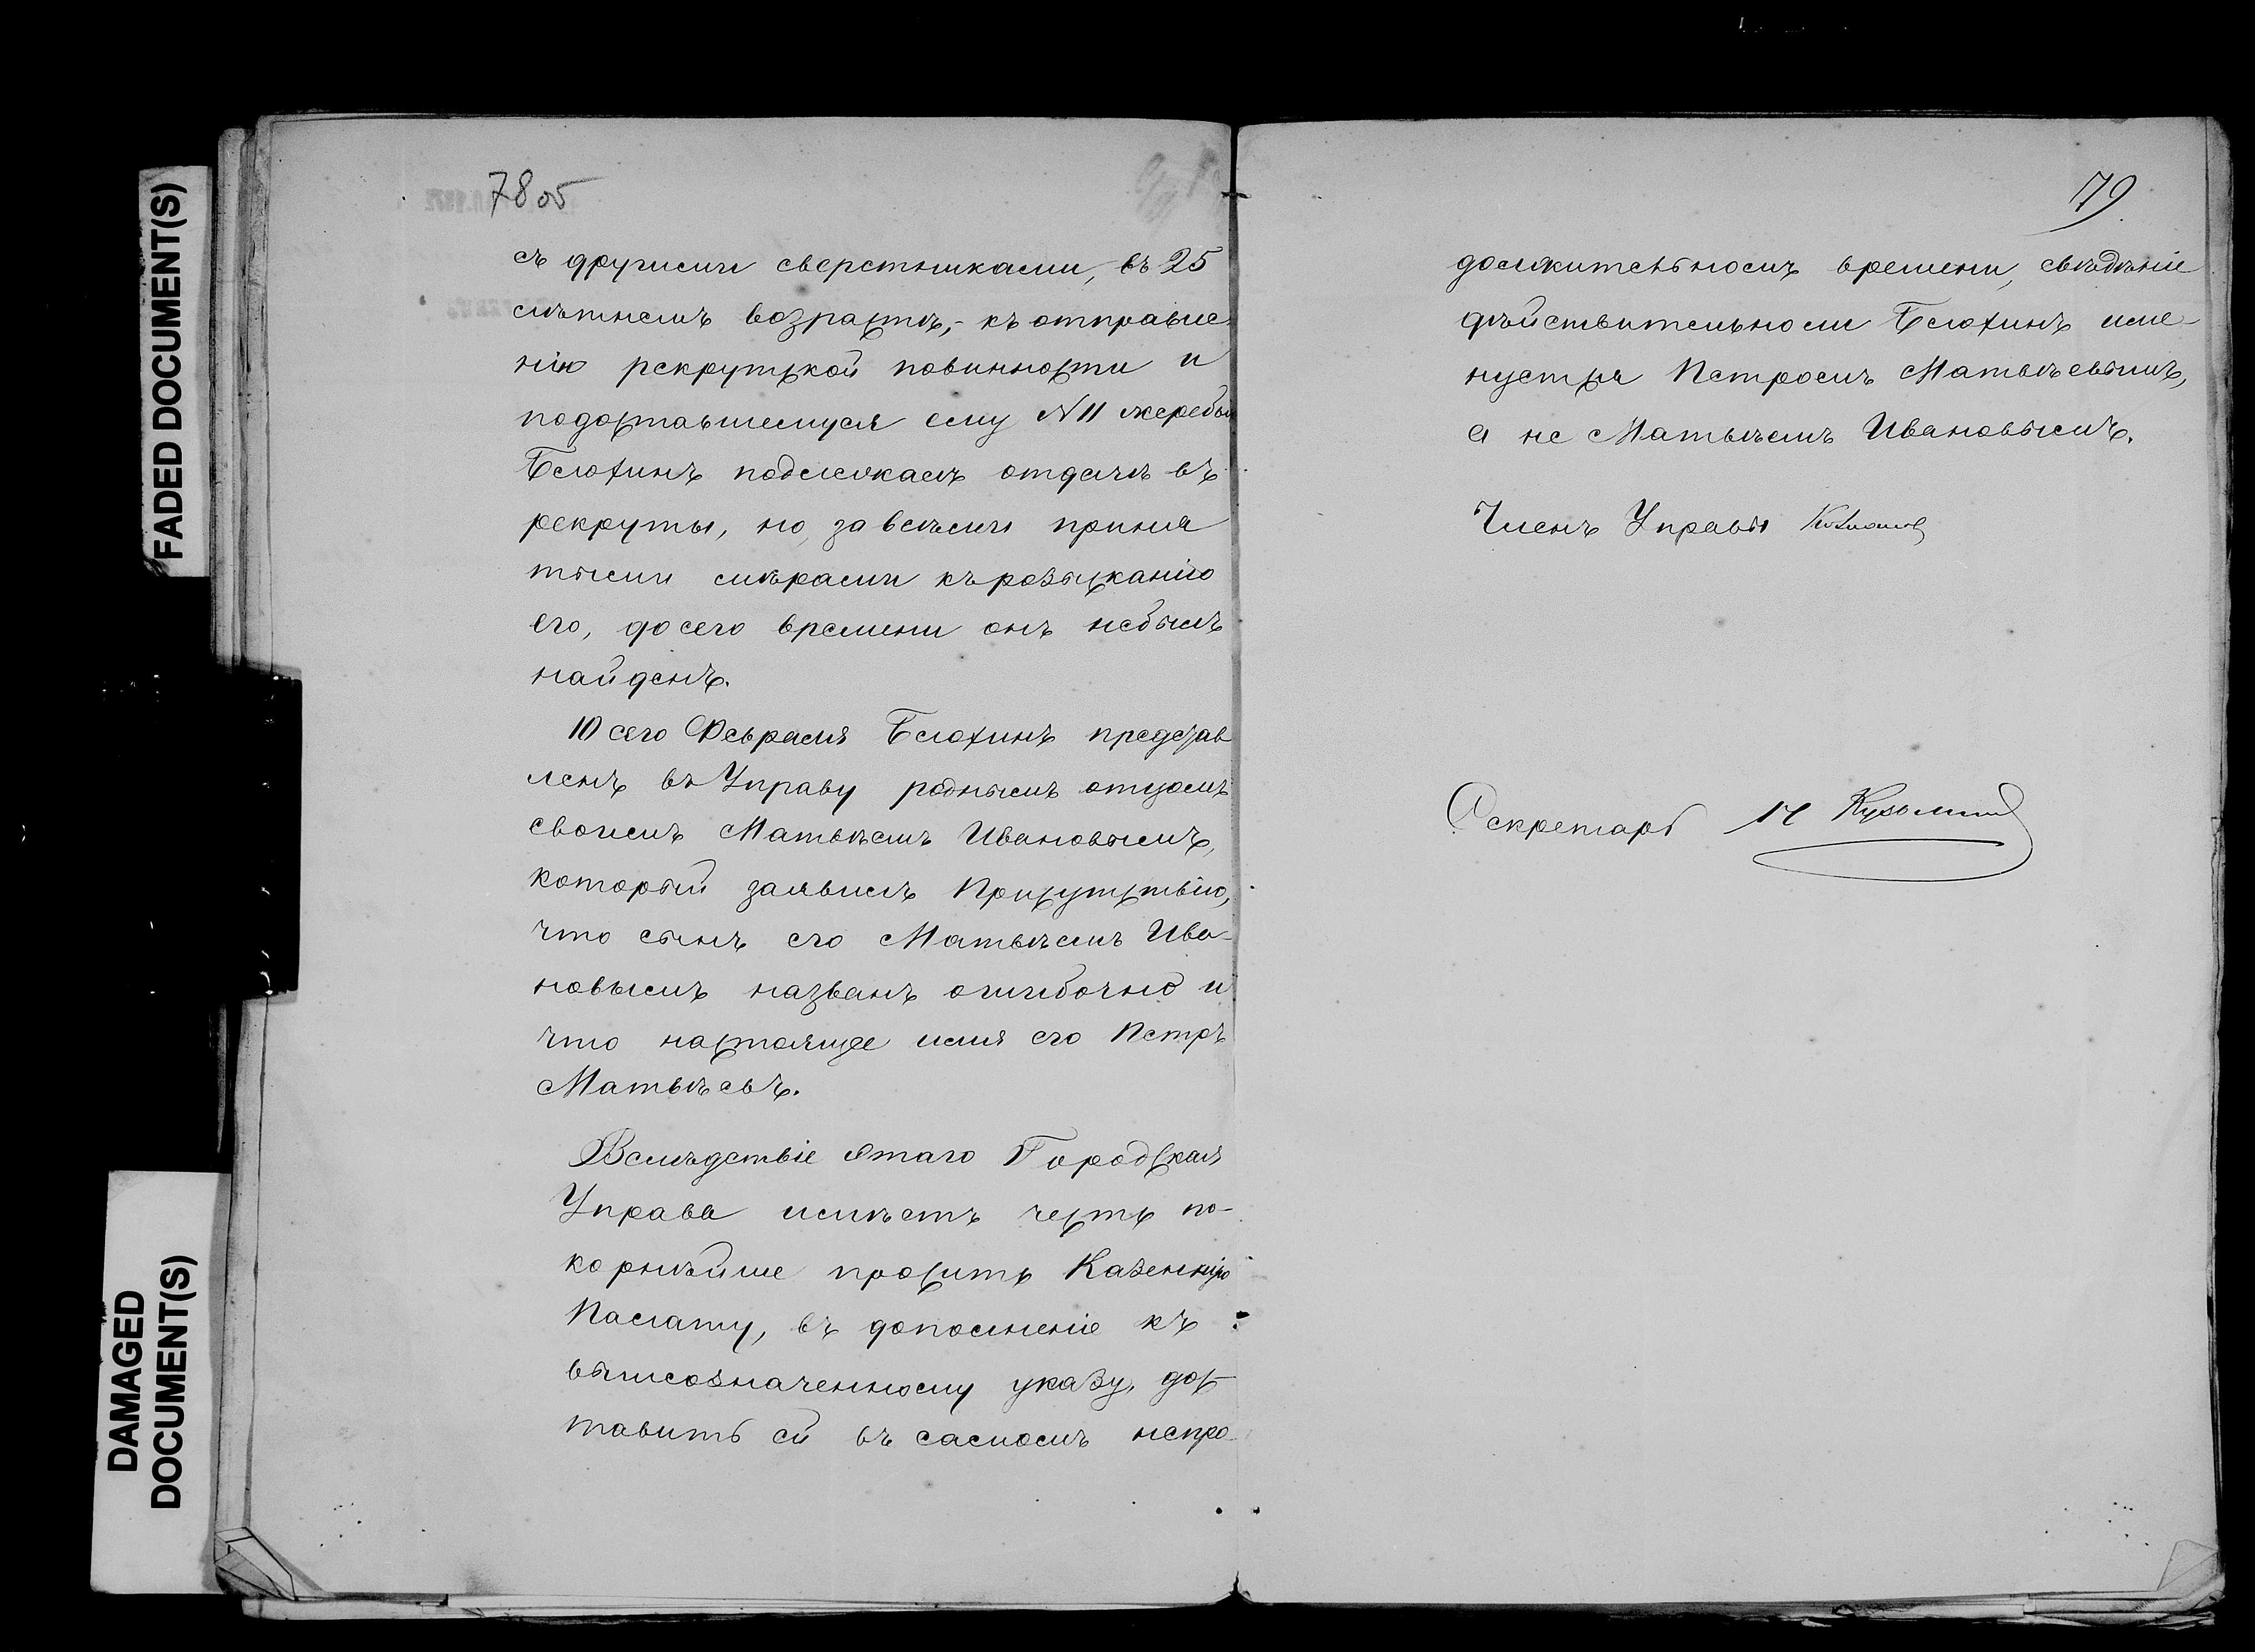 FADED DOCUMENT(S)
DAMAGED
DOCUMENT(S)
78 об
съ другими сверстниками, въ 25
лѣтнемъ возрастѣ, - къ отправле-
нію рекрутской повинности и
подоставшемуся ему № 11 жеребью
Белюхинъ подлежалъ отдачѣ въ
рекруты, но, за всѣми приня
тыми мѣрами къ розысканію
его, до сего времени онъ небылъ
найденъ.
10 сего Февраля Белюхинъ представ
ленъ въ Управу роднымъ отцомъ
своимъ Матвѣемъ Ивановымъ,
который заявилъ Присутствію,
что сынъ его Матвѣемъ Ива-
новымъ названъ ошибочно и
что настоящее имя его Петръ
Матвѣевъ.
Вслѣдствіе этаго Городская
Управа имѣетъ честь по-
корнѣйше просить Казенную
Палату, въ дополненіе къ
вышеозначенному указу, дос-
тавить ей въ самомъ непро-
79
должительномъ времени, свѣдѣніе
дѣйствительноли Белюхинъ име-
нуется Петромъ Матвѣевымъ,
а не Матвѣемъ Ивановымъ.
Членъ Управы
Секретарь И Кузьминъ